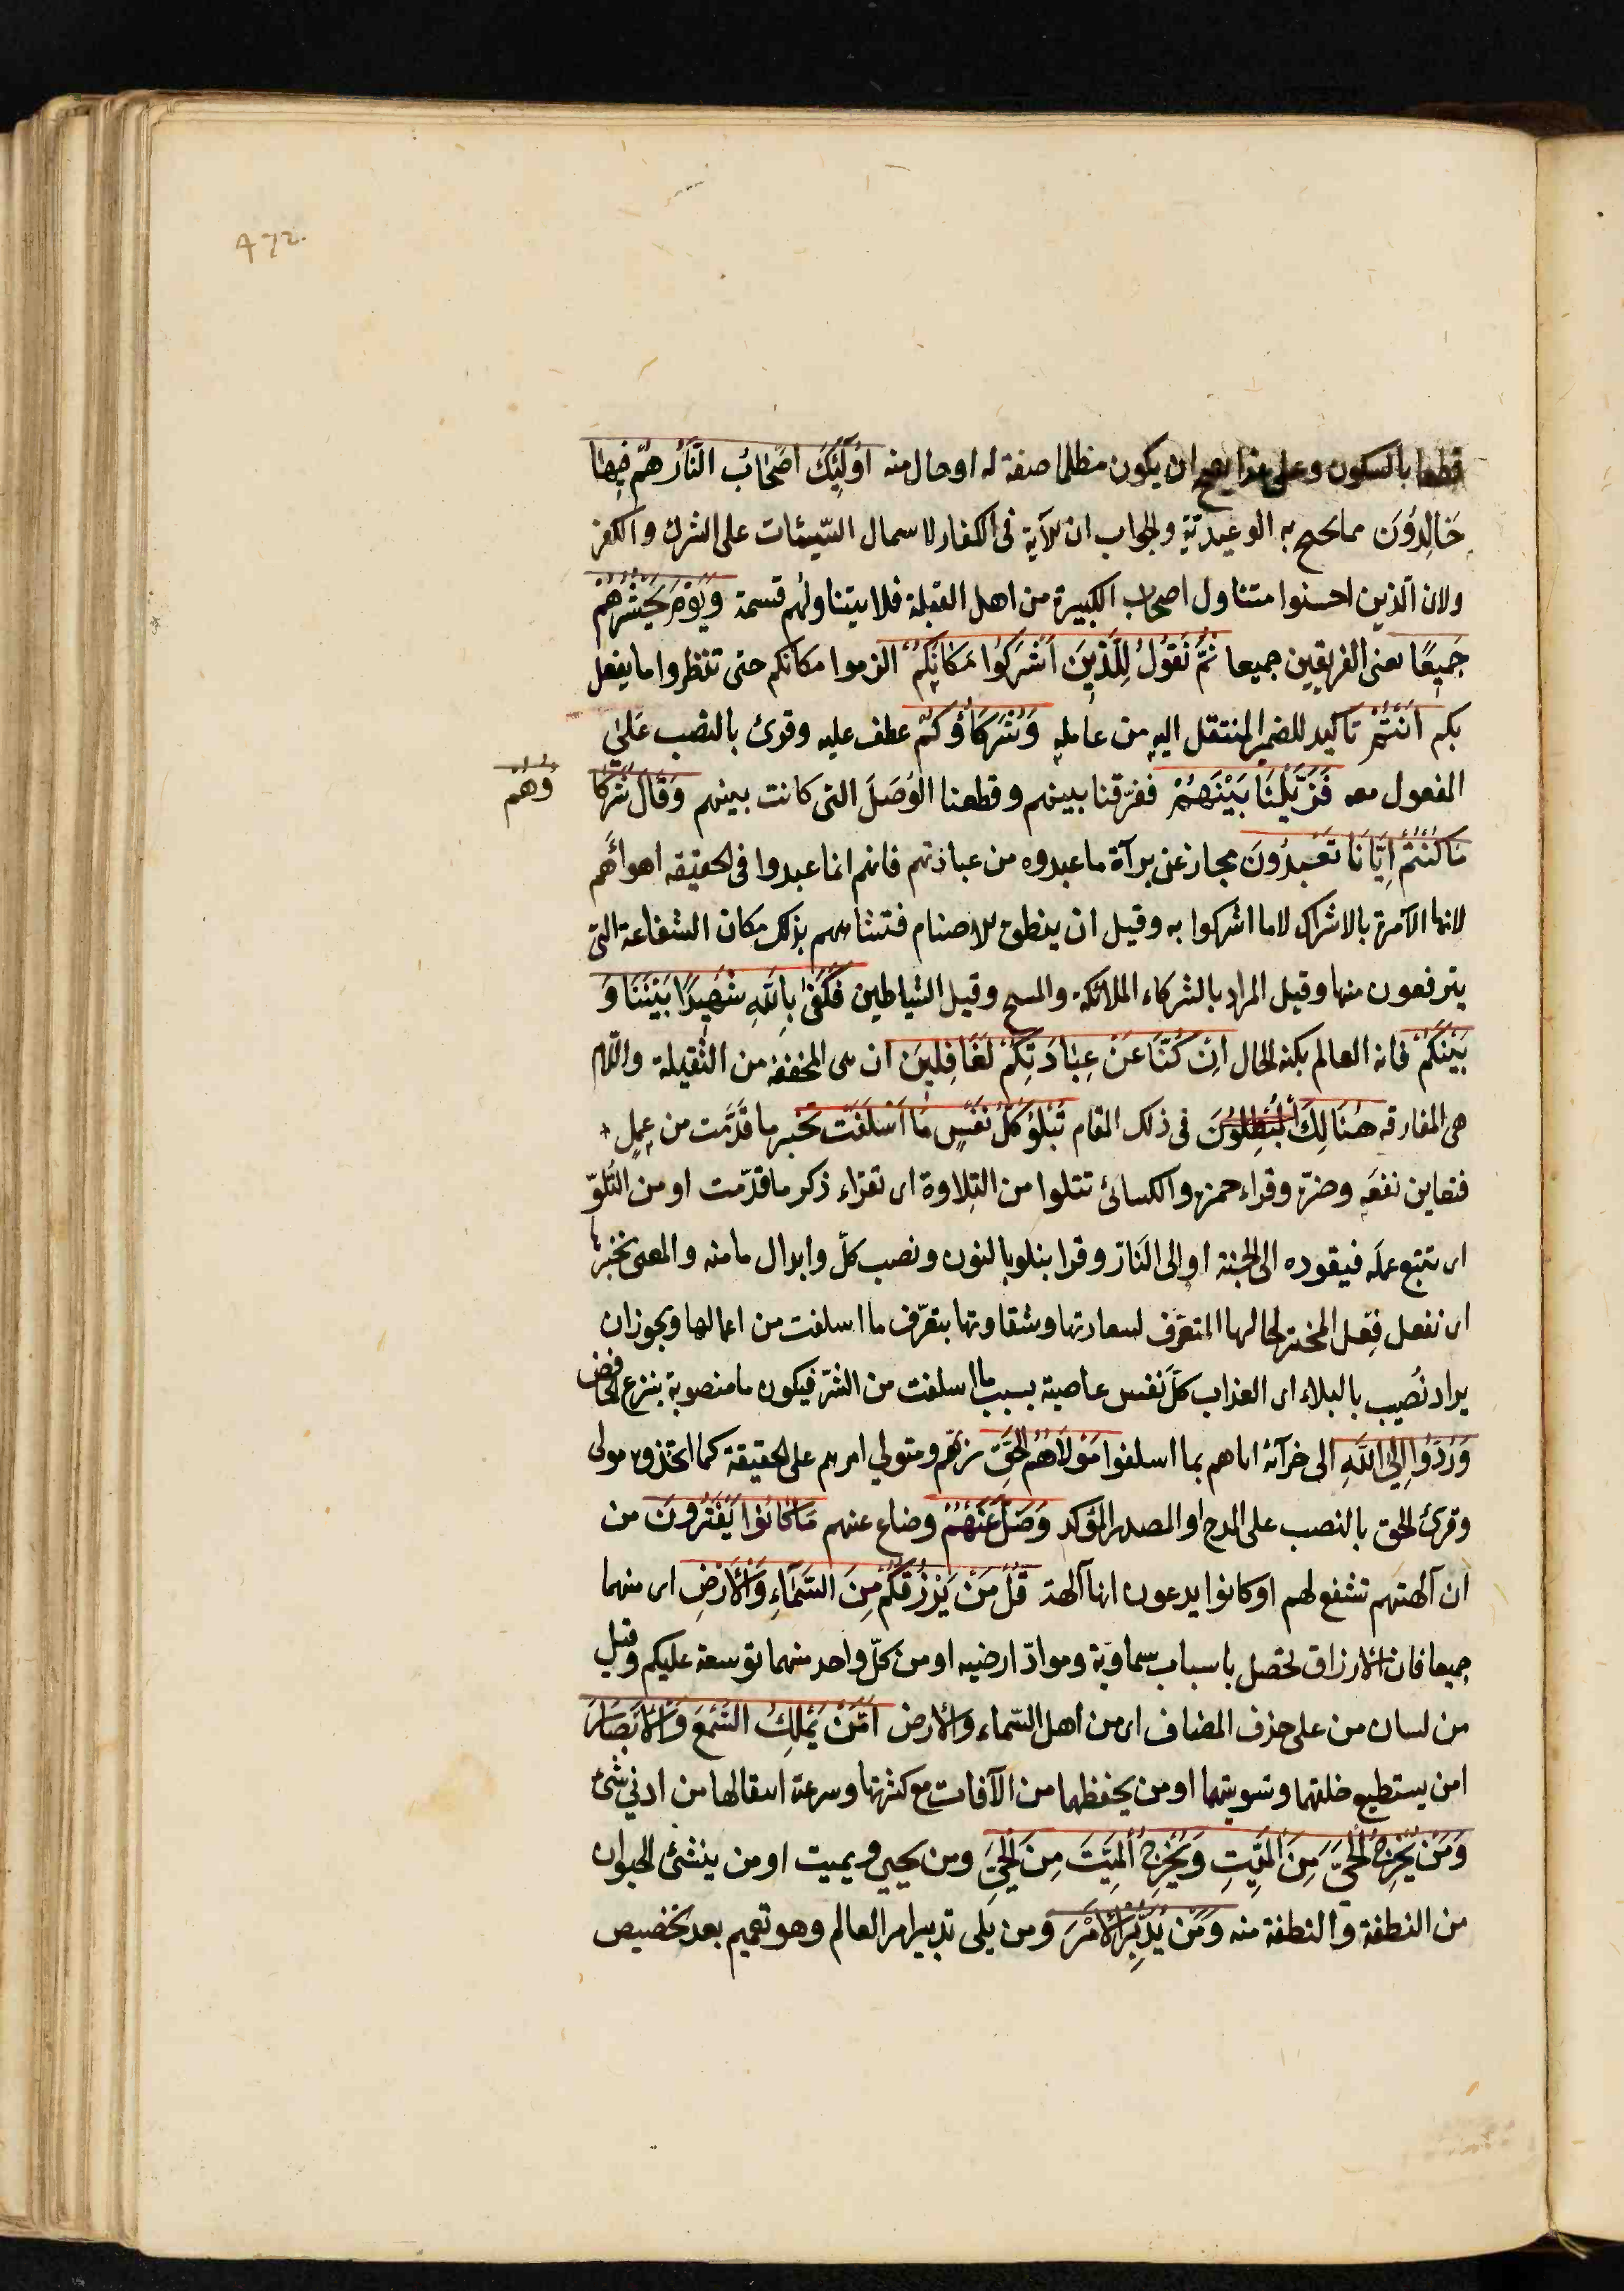 472.
قطعا بالسكون وعلى هذا يصح ان يكون مظلما صفة له او حال منه اُولٰٓئِكَ اَصْحَابُ النَّارِ هُمْ فِيهَا
خَالِدُونَ مما يحتج به الوعيديّة والجواب ان الآية فى الكفار لاسمال السّيئات على الشرك والكفر
ولان الّذين احسنوا متناول اصحاب الكبيرة من اهل القبلة فلا يتناولهم قسمة وَيَوْمَ يَحْشُرُهُمْ
جَمِيعًا يعنى الفريقين جميعا ثُمَّ نَقُولُ لِلَّذِينَ اَشْرَكُوا مَكَانَكُمْ الزموا مكانكم حتى تنظروا ما يفعل
بكم اَنْتُمْ تاكيد للضمير المنتقل اليه من عامله وَشُرَكَاؤُكُمْ عطف عليه وقرئ بالنصب على
المفعول معه فَزَيَّلْنَا بَيْنَهُمْ ففرّقنا بينهم وقطعنا الوُصَلَ التى كانت بينهم وَقَالَ شُرَكَا
ؤُهُمْ
مَا كُنْتُمْ اِيَّانَا تَعْبُدُونَ مجاز عن برآة ما عبدوه من عبادتهم فانهم انما عبدوا فى الحقيقه اهوائهم
لانها الآمرة بالاشراك لا ما اشركوا به وقيل ان ينطق الاصنام فتشافههم بذلك مكان الشفاعة التى
يترفعون منها وقيل المراد بالشركاء الملائكة والمسيح وقيل الشياطين فَكَفٰى بِاللّٰهِ شَهِيدًا بَيْنَنَا وَ
بَيْنَكُمْ فانه العالم بكنه الحال اِنْ كُنَّا عَنْ عِبَادَتِكُمْ لَغَافِلِينَ ان هى المخففة من الثقيلة واللام
هى الفارقه هُنَالِكَ فى ذلك المقام تَبْلُو كُلُّ نَفْسٍ مَا اَسْلَفَتْ تختبر ما قدّمت من عمل
فتعاين نفعه وضرّه وقراء حمزه والكسائى تتلوا من التِلاوة اى تقراء ذكر ما قدّمت او من التُلوّ
اى تتبع عمله فيقوده الى الجنة او الى النار وقرا نبلو بالنون ونصب كلّ وابدال ما منه والمعنى نختبرها
اى نفعل فِعل المختبر لحالها المتعرّف لسعادتها وشقاوتها بتعرّف ما اسلفت من اعمالها ويجوز ان
يراد نُصِيب بالبلاء اى العذاب كلَّ نفس عاصية بسبب ما اسلفت من الشرّ فيكون ما منصوبة بنزع الخافض
وَرُدُّوا اِلَى اللّٰهِ الى جزآئه اياهم بما اسلفوا مَوْلَاهُمُ الْحَقِّ ربّهم ومتولي امرهم على الحقيقة كما اتخذوه مولى
وقرئ الحق بالنصب على المدح او المصدر المؤكد وَضَلَّ عَنْهُمْ وضاع عنهم مَا كَانُوا يَفْتَرُونَ من
ان آلهتهم تشفع لهم او كانوا يدعون انها آلهة قُلْ مَنْ يَرْزُقُكُمْ مِنَ السَّمَآءِ وَالْاَرْضِ اى منهما
جميعا فان الارزاق تحصل باسباب سماويّة وموادّ ارضيه او من كلّ واحد منهما توسعة عليكم وقيل
من لبيان من على حذف المضاف اى من اهل السّماء والارض اَمَّنْ يَمْلِكُ السَّمْعَ وَالْاَبْصَارَ
امن يستطيع خلقهما وتسويتهما او من يحفظهما من الآفات مع كثرتها وسرعة انفعالها من ادنى شئ
وَمَنْ يُخْرِجُ الْحَيَّ مِنَ الْمَيِّتِ وَيُخْرِجُ الْمَيِّتَ مِنَ الْحَيِّ ومن يحيي ويميت او من ينشئ الحيوان
من النطفة والنطفة منه وَمَنْ يُدَبِّرُ الْاَمْرَ ومن يلى تدبير امر العالم وهو تعميم بعد تخصيص